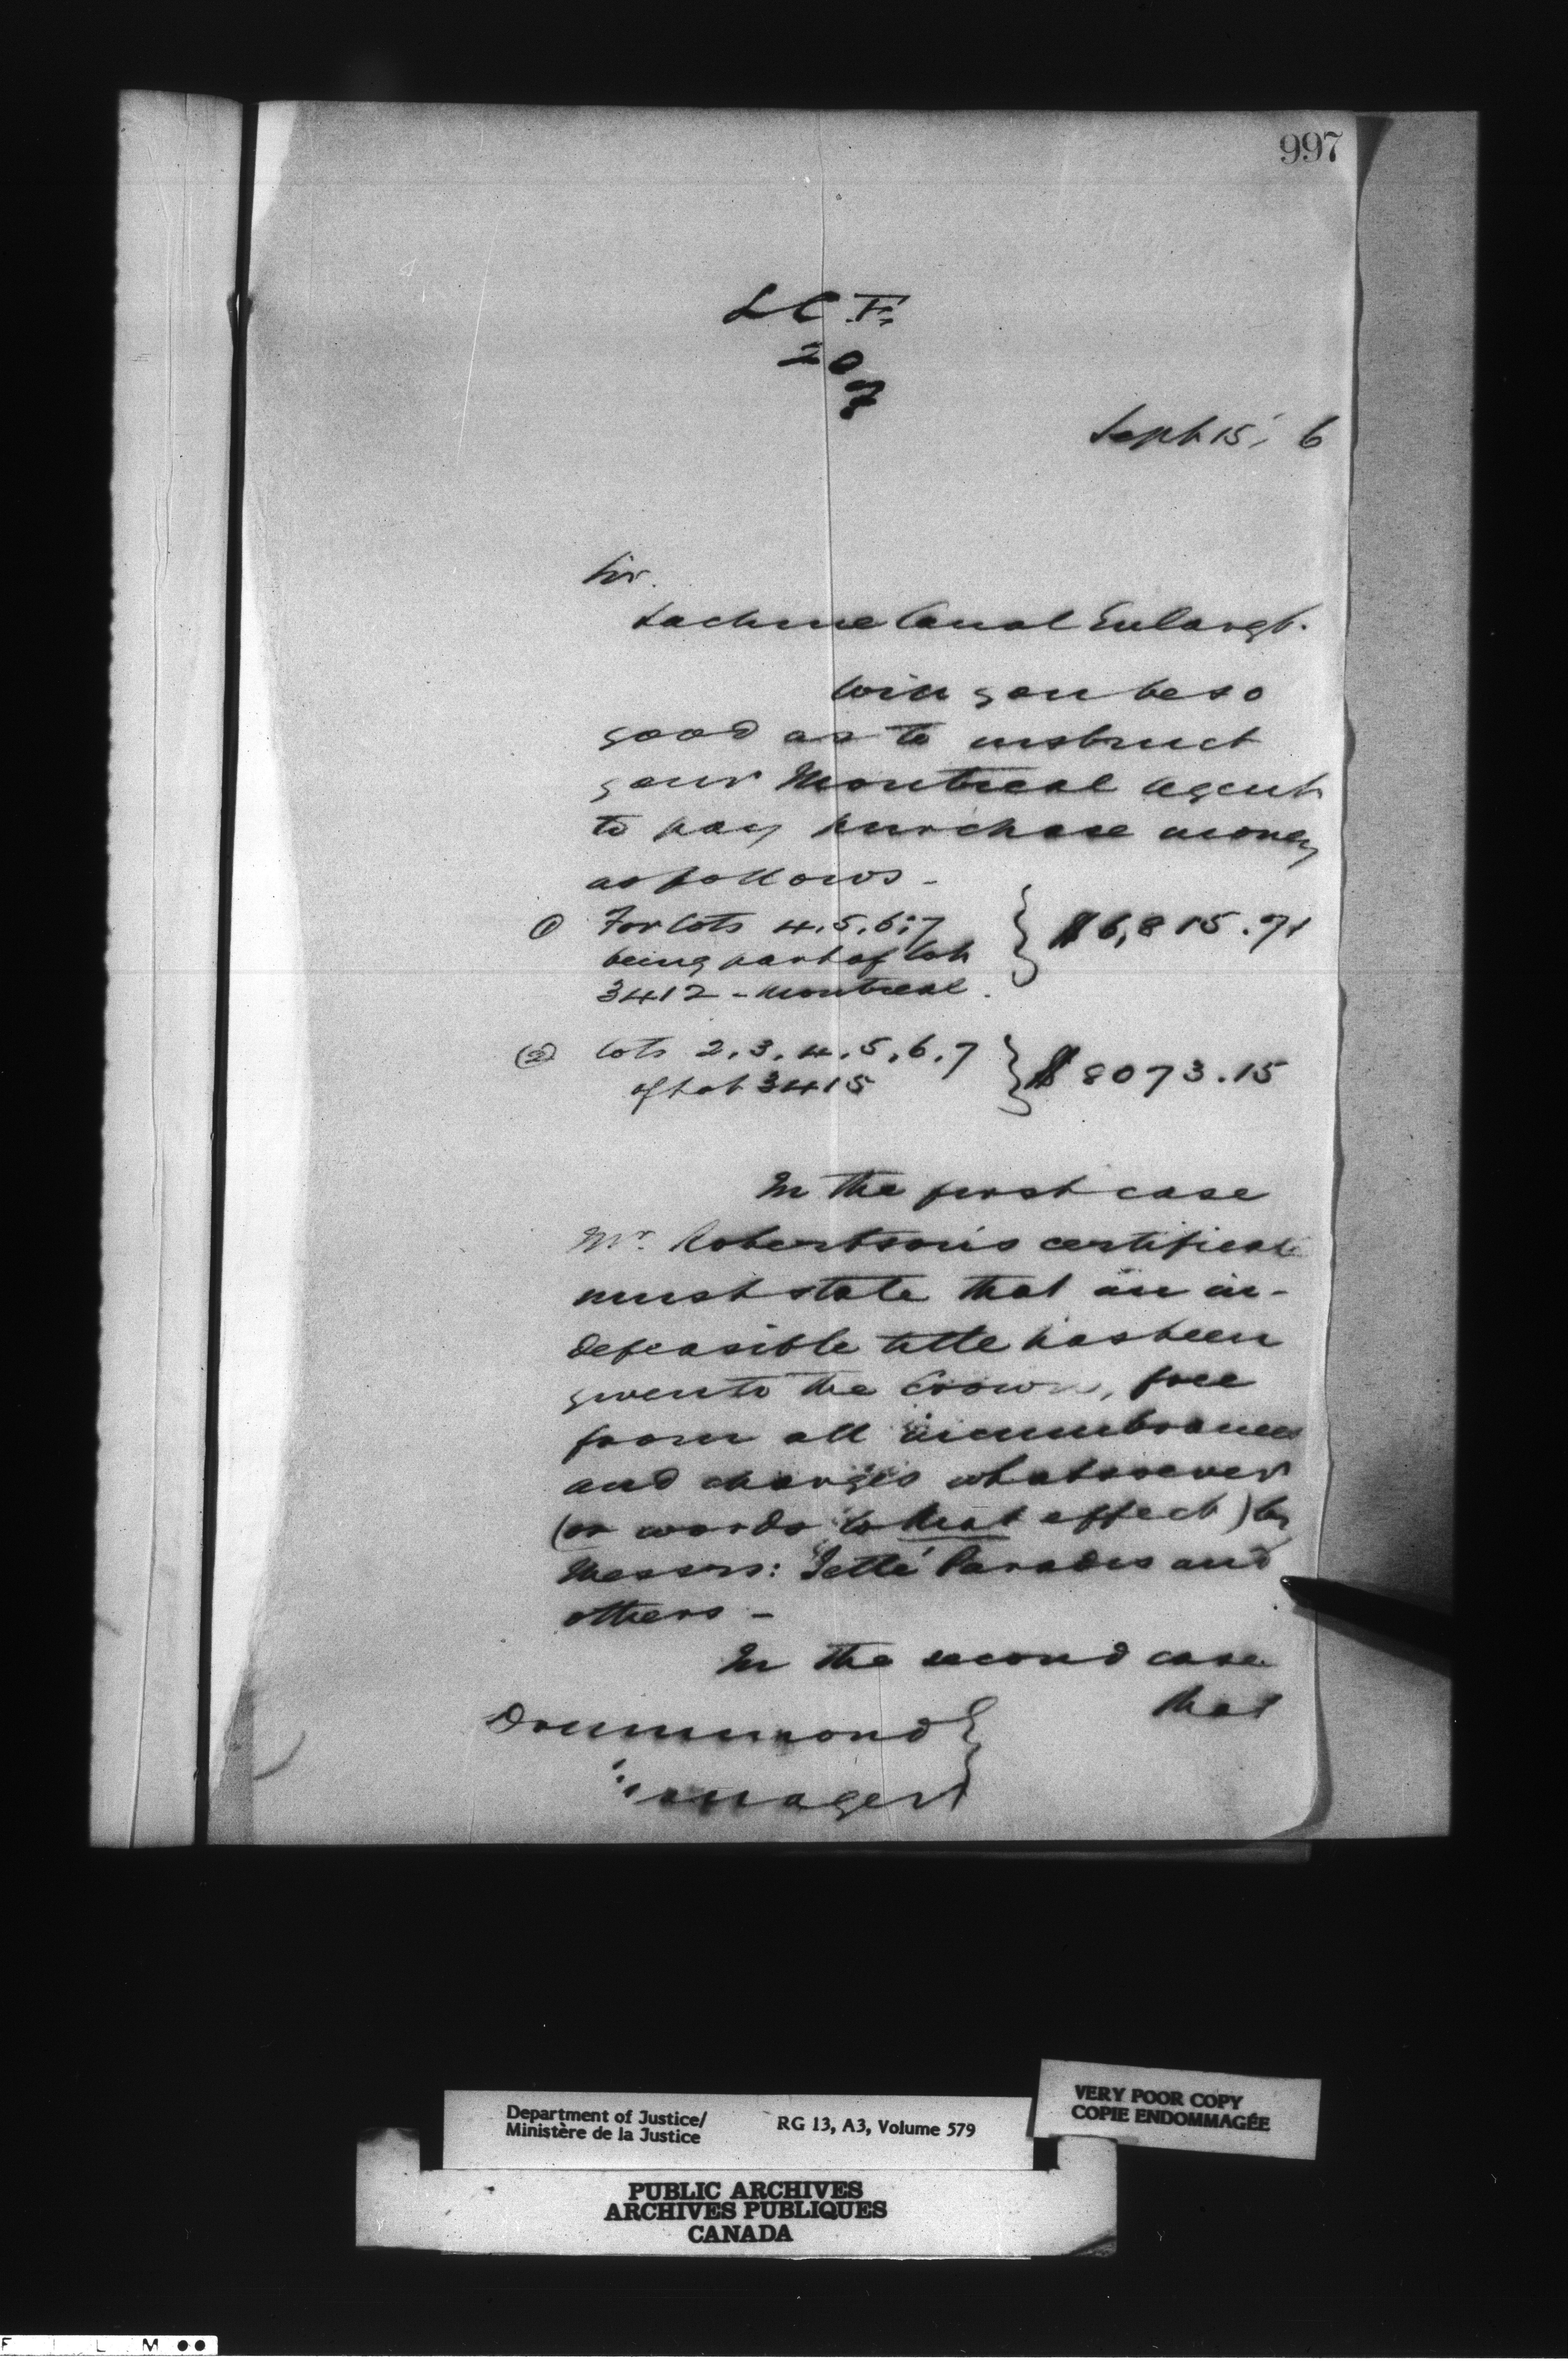 997
L C E
207
Sept. 15, 6
Sir.
Lachine Canal Enlargt.
Will you be so
good as to instruct
your Montreal Agent
to pay purchase money
as follows -
(1) For lots 4, 5, 6, 7
being part of Lot
3412 - Montreal.
$6,815.71
(2) lots 2, 3, 4, 5, 6, 7
of Lot 3415
$8073.15
In the first case
Mr. Robertson's certificate
must state that an in-
defeasible title has been
given to the Crown, free
from all incumbrances
and charges whatsoever
(or words to that effect) by
Messrs: Jetté Paradis and
others -
In the second case
that
Drummond
Manager
Department of Justice/
Ministère de la Justice
RG 13, A3, Volume 579
VERY POOR COPY
COPIE ENDOMMAGÉE
PUBLIC ARCHIVES
ARCHIVES PUBLIQUES
CANADA
F I L M